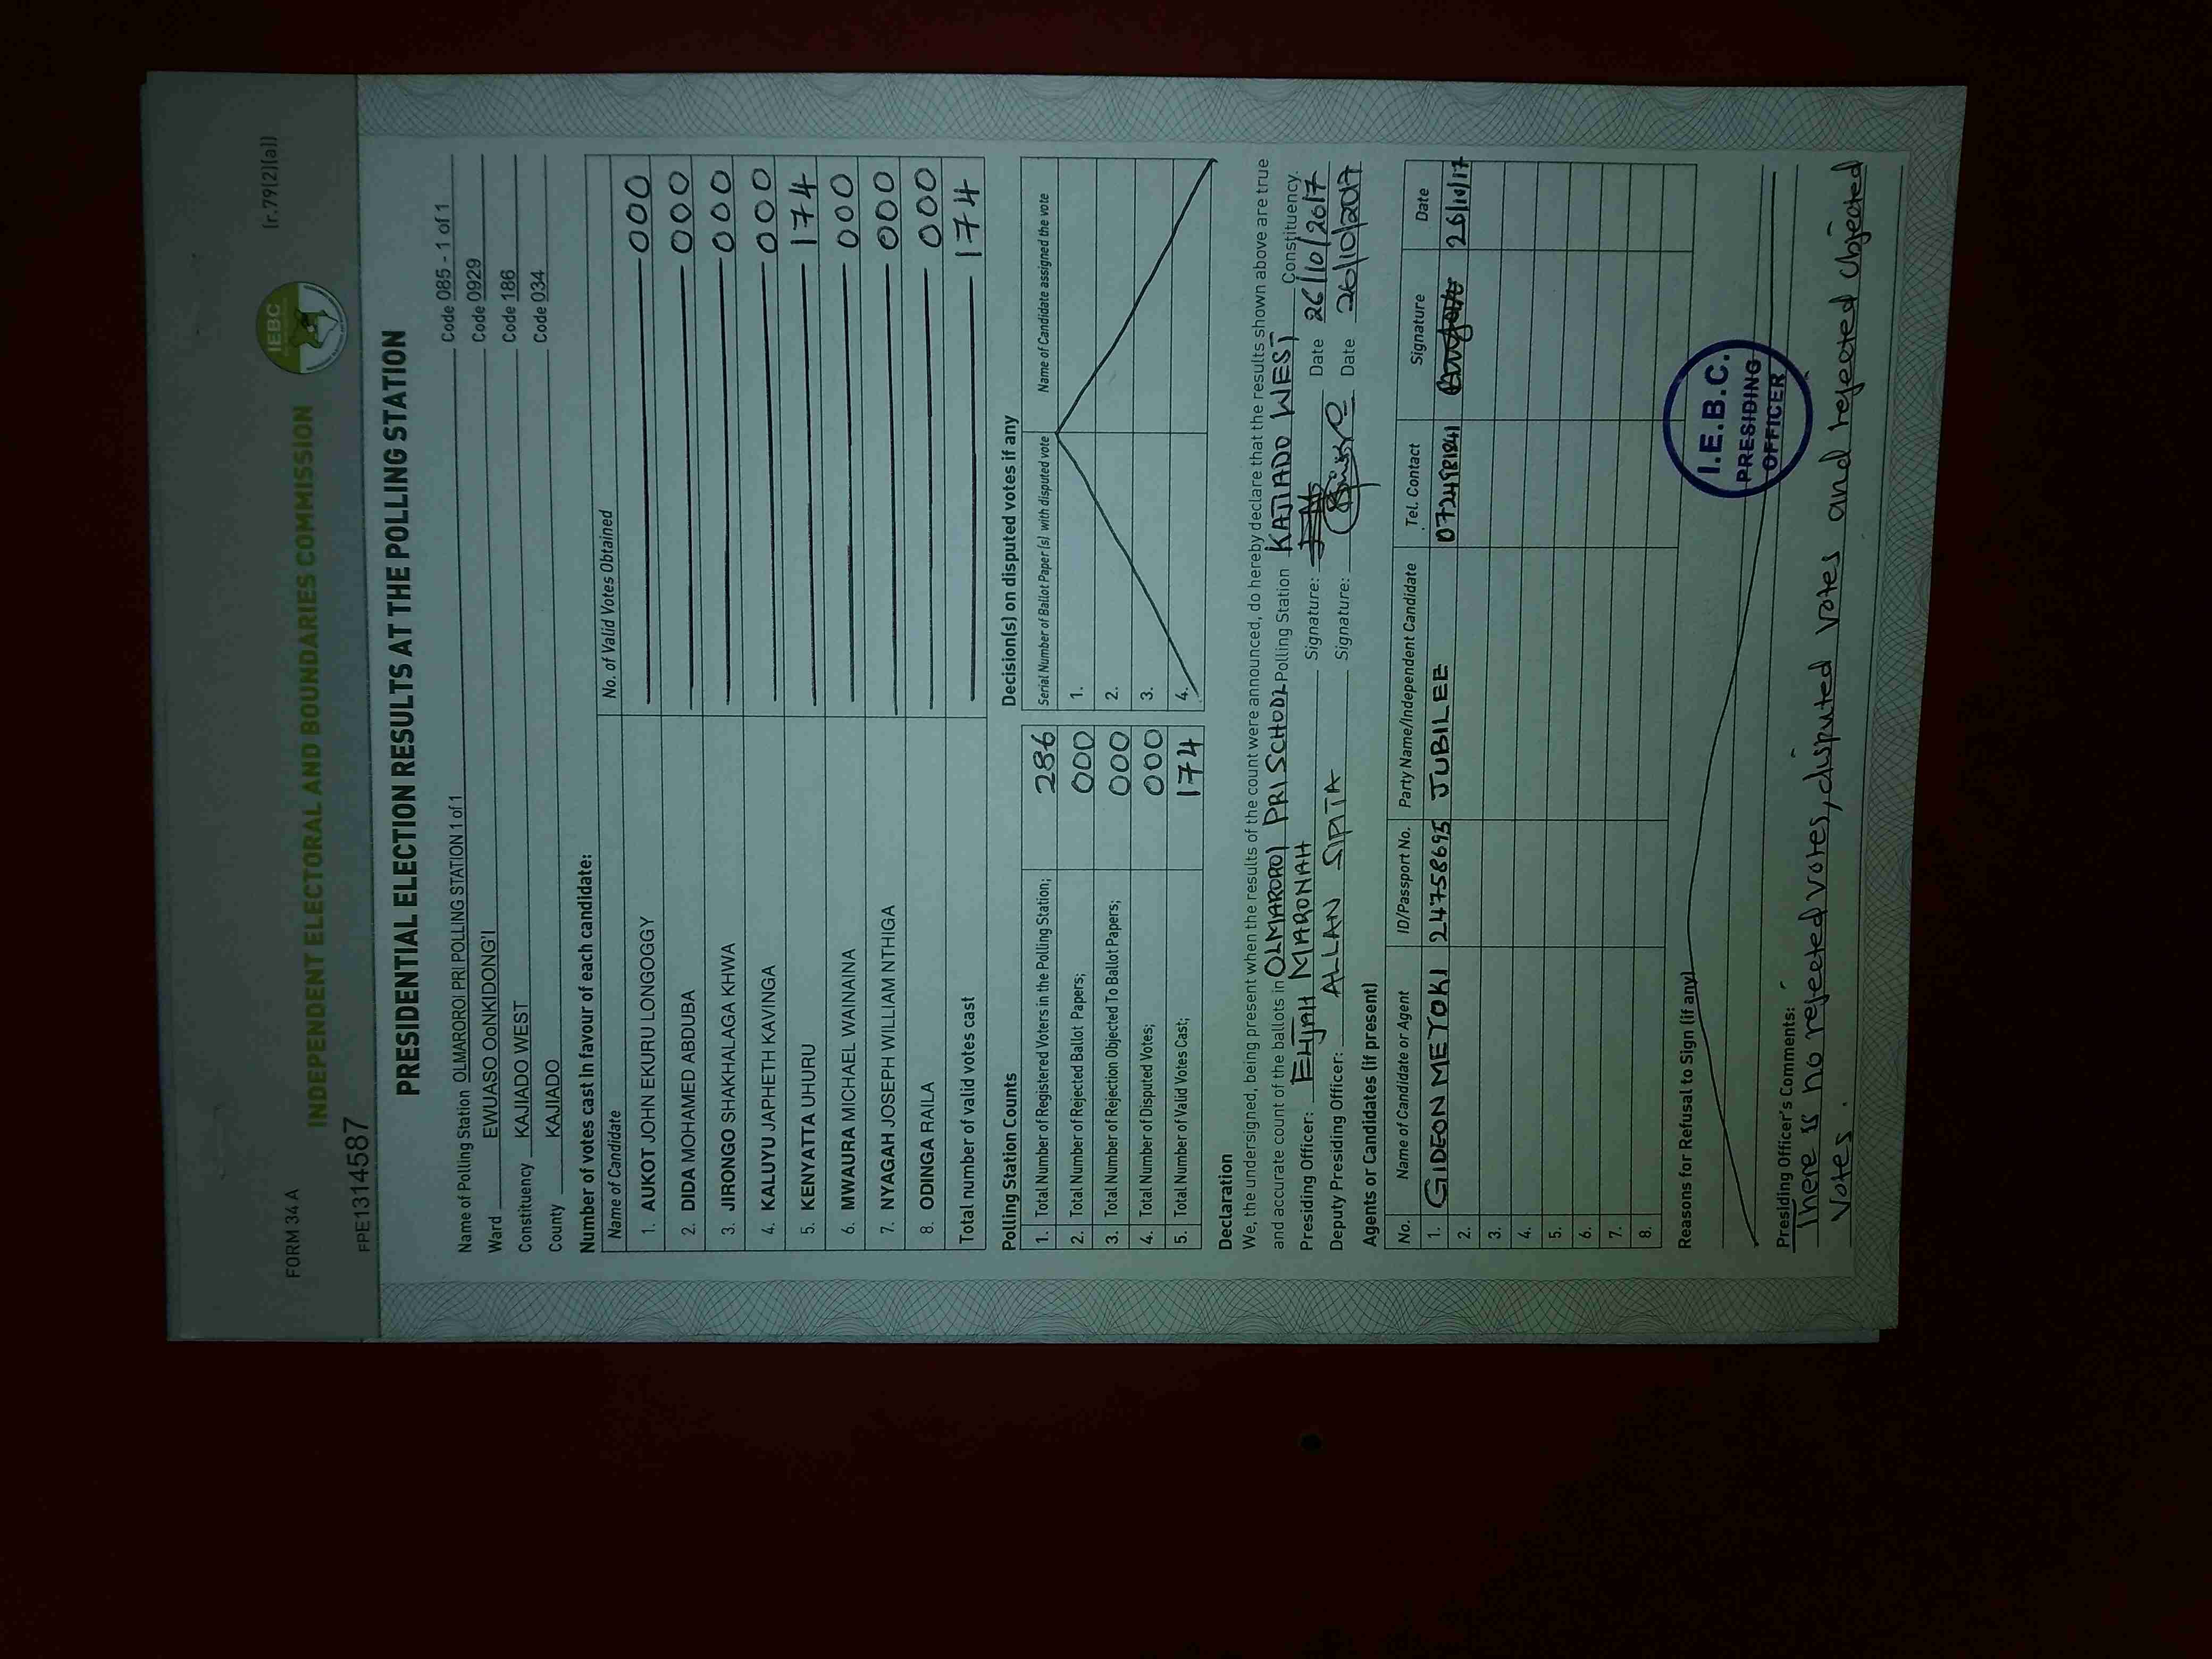 FORM 34 A
(r.79(2)(a))
IEBC
INDEPENDENT ELECTORAL AND BOUNDARIES COMMISSION
FPE1314587
PRESIDENTIAL ELECTION RESULTS AT THE POLLING STATION
Name of Polling Station OLMAROROI PRI POLLING STATION 1 of 1 Code 085 - 1 of 1
Ward EWUASO OoNKIDONG'I Code 0929
Constituency KAJIADO WEST Code 186
County KAJIADO Code 034
Number of votes cast in favour of each candidate:
Name of Candidate No. of Valid Votes Obtained
1. AUKOT JOHN EKURU LONGOGGY 000
2. DIDA MOHAMED ABDUBA 000
3. JIRONGO SHAKHALAGA KHWA 000
4. KALUYU JAPHETH KAVINGA 000
5. KENYATTA UHURU 174
6. MWAURA MICHAEL WAINAINA 000
7. NYAGAH JOSEPH WILLIAM NTHIGA 000
8. ODINGA RAILA 000
Total number of valid votes cast 174
Polling Station Counts
1. Total Number of Registered Voters in the Polling Station; 286
2. Total Number of Rejected Ballot Papers; 000
3. Total Number of Rejection Objected To Ballot Papers; 000
4. Total Number of Disputed Votes; 000
5. Total Number of Valid Votes Cast; 174
Decision(s) on disputed votes if any
Serial Number of Ballot Paper (s) with disputed vote Name of Candidate assigned the vote
1.
2.
3.
4.
Declaration
We, the undersigned, being present when the results of the count were announced, do hereby declare that the results shown above are true
and accurate count of the ballots in OLMAROROI PRI SCHOOL Polling Station KAJIADO WEST Constituency.
Presiding Officer: ELIJAH MARONAH Signature: Date 26/10/2017
Deputy Presiding Officer: ALLAN SIPITA Signature: Date 26/10/2017
Agents or Candidates (if present)
No. Name of Candidate or Agent ID/Passport No. Party Name/Independent Candidate Tel. Contact Signature Date
1. GIDEON METOKI 24758695 JUBILEE 26/10/17
2.
3.
4.
5.
6.
7.
8.
Reasons for Refusal to Sign (if any)
I.E.B.C.
PRESIDING
OFFICER
Presiding Officer's Comments:
There is no rejected votes, disputed votes and rejected objected
votes.